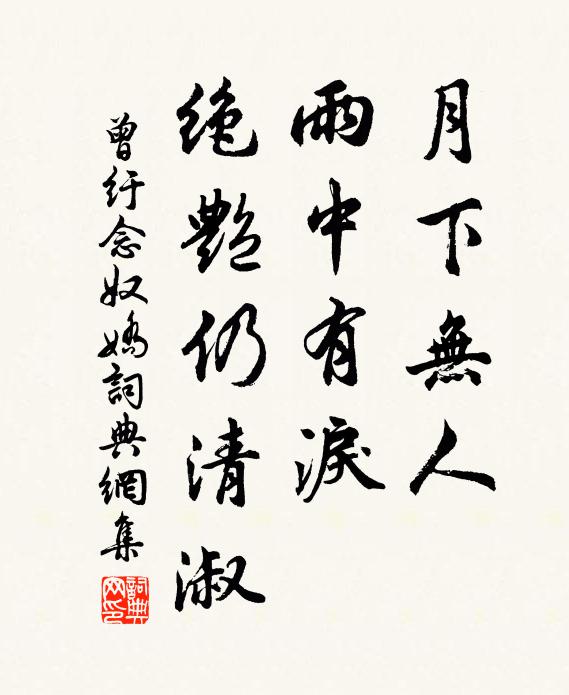 月下無人
雨中有淚
絶艷仍清淑
曾紆念奴嬌詞典網集
詞典网印